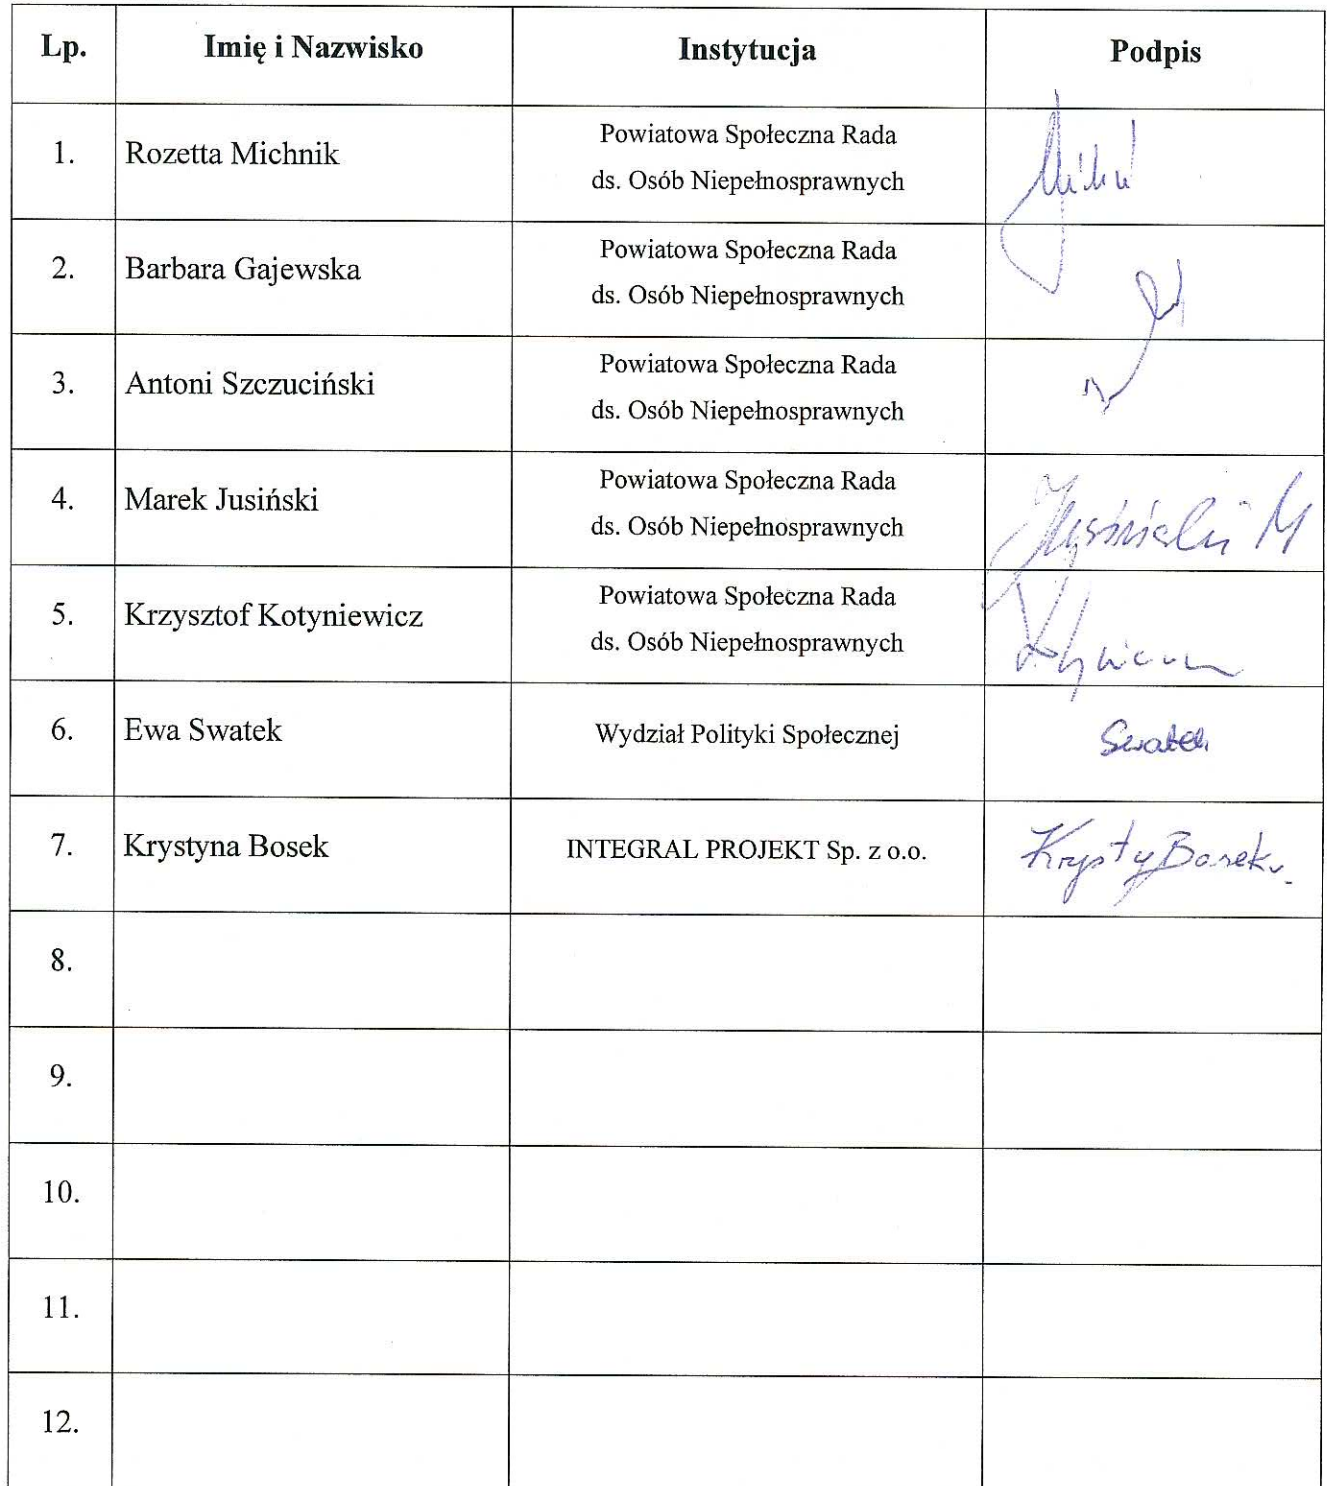 Lp. Imię i Nazwisko Instytucja Podpis
1. Rozetta Michnik Powiatowa Społeczna Rada
ds. Osób Niepełnosprawnych
2. Barbara Gajewska Powiatowa Społeczna Rada
ds. Osób Niepełnosprawnych
3. Antoni Szczuciński Powiatowa Społeczna Rada
ds. Osób Niepełnosprawnych
4. Marek Jusiński Powiatowa Społeczna Rada
ds. Osób Niepełnosprawnych Jusiński M
5. Krzysztof Kotyniewicz Powiatowa Społeczna Rada
ds. Osób Niepełnosprawnych
6. Ewa Swatek Wydział Polityki Społecznej Swatek
7. Krystyna Bosek INTEGRAL PROJEKT Sp. z o.o. Krysty Bosek
8.
9.
10.
11.
12.